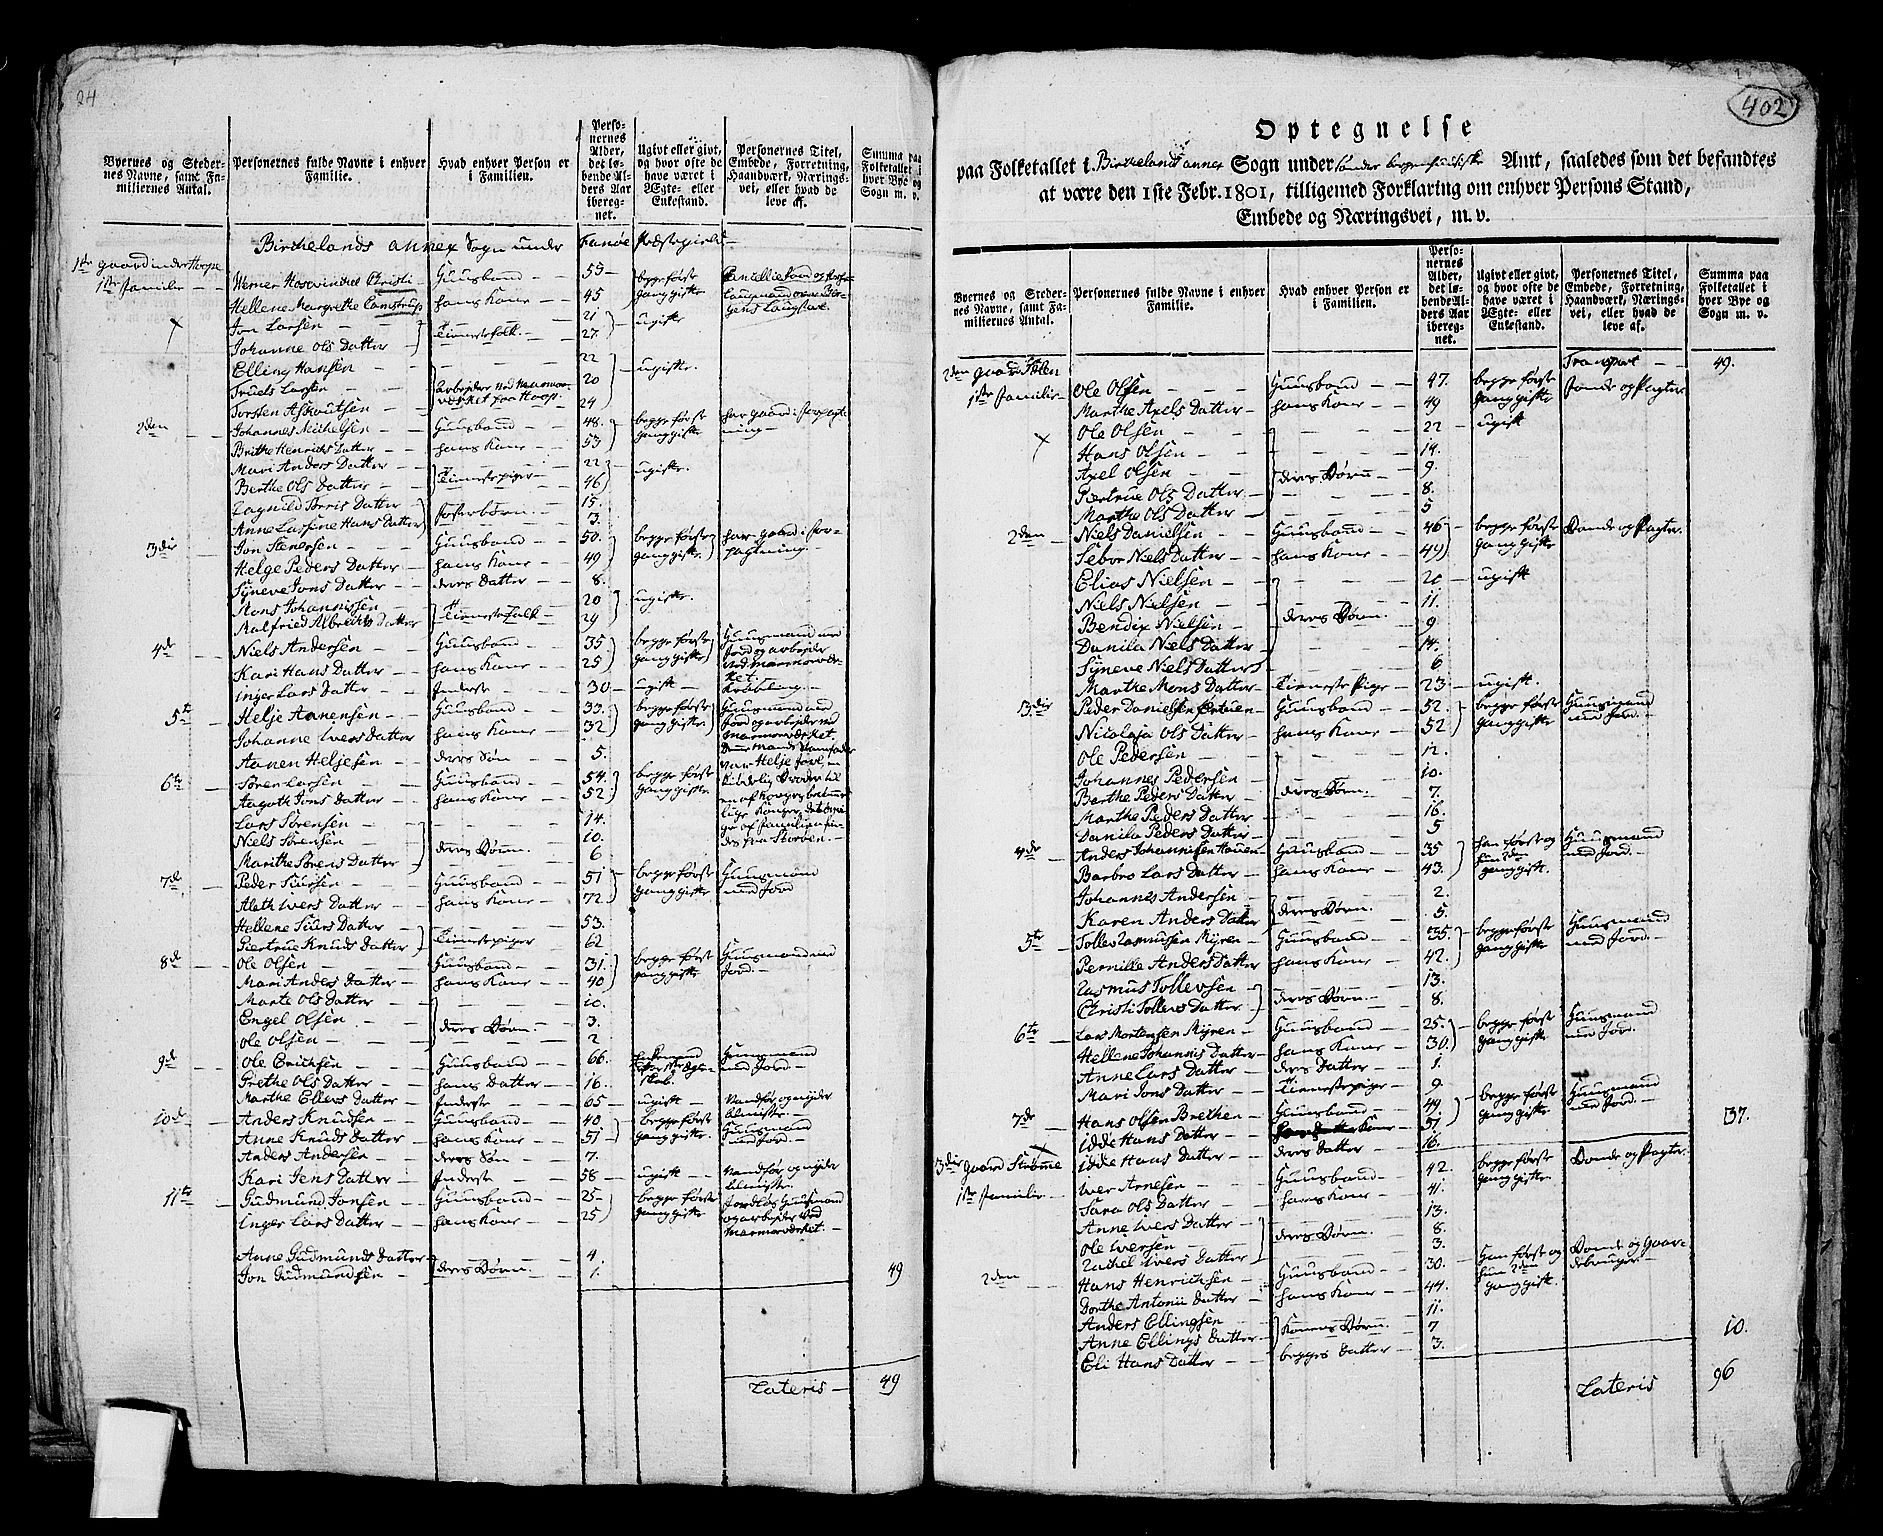 24
Byernes og Steder-
nes Navne, samt Fa-
miliernes Antal.
Personernes fulde Navne i enhver
Familie.
Hvad enhver Person er
i Familien.
Perso-
nernes
Alder,
det lø-
bende Al-
ders Aar
ibereg-
net.
Ugivt eller givt,
og hvor ofte de
have været i
Ægte- eller
Enkestand.
Personernes Titel,
Embede, Forretning,
Haandværk, Nærings-
vei, eller hvad de
leve af.
Summa paa
Folketallet i
hver Bye og
Sogn m. v.
Birchelands annex Sogn under Fanøe Præstegield
1ste gaard inder Hoope
1ste familie Werner Hosevinckel Christi Huusbond 55 begge første
Hellene Margrethe Landtrup hans Kone 45 gang gifte
Jon Larsen 21
Johanne Ols Datter Tienestefolk 27 ugifte
Elling Hansen 22
Truels Larsen 20 ugifte
Torsten Asloutsen 24
2den Johannes Michelsen Huusbond 48 begge første har gaard i forpagt
Brithe Henrichs Datter hans Kone 53 gang gifte ning
Mari Anders Datter 22
Berthe Ols Datter Tienestepiger 46 ugifte
Ragnild Torris Datter 15
Anne Larsine Hans Datter fosterbørn 3
3die Jon Stenersen Huusbond 50 begge første har gaard i for-
Helge Peders Datter hans Kone 49 gang gifte pagtning
Syneve Jons Datter deres Datter 8
Mons Johannissen 20
Malfried Albrechts Datter Tienestefolk 29 ugifte
4de Niels Andersen Huusbond 35 begge første Huusmand med
Kari Hans Datter hans Kone 25 gang gifte Jord og arbejder
ved Marmorvær-
ket
Inger Lars Datter Inderste 30 ugift Krøbbling
5te Helje Aanensen Huusbond 33 begge første Huusmand med
Johanne Ivers Datter hans Kone 32 gang gifte Jord og arbejder ved
Marmorværket
Aanen Heljesen deres Søn 5
6te Sören Larsen Huusbond 54 begge første
Aagoth Jons Datter hans Kone 52 gang gifte
Lars Sørensen 14
Niels Sørensen deres Børn 10
Marithe Sørens Datter 6
7de Peder Siursen Huusbond 51 begge første Huusmand
Aleth Ivers Datter hans Kone 72 gang gifte med Jord
Hellene Siurs Datter 53
Piertrue Knuds Datter Tienestepiger 62
8de Ole Olsen Huusbond 31 begge først Huusmand med
Mari Anders Datter hans Kone 40 gang gifte Jord
Marte Ols Datter 10
Engel Olsen deres Børn 3
Ole Olsen 2
9de Ole Erichsen Huusbond 66 Huusmand
med Jord
Grethe Ols Datter hans Datter 16
Marthe Ellers Datter Inderste 65 ugift Vandfør og nyder
almisse
10de Anders Knudsen Huusbond 40 begge første Huusmand
Anne Knuds Datter hans Kone 51 gang gifte med Jord
Anders Andersen deres Søn 7
Kari Jens Datter Inderste 58 ugift Vandfør og nyder
almisse
11te Gudmund Jonsen Huusbond 25 begge første Jordløs Huusmand
Inger Lars Datter hans Kone 25 gang gifte og arbejder ved
Marmorværket
Anne Gudmunds Datter 4
Jon Gudmundsen deres Børn 1 49
Lateris 49
402
Optegnelse
paa Folketallet i Birkeland annex Sogn under Søndre bergenhuuske Amt, saaledes som det befandtes
at være den 1ste Febr. 1801, tilligemed Forklaring om enhver Persons Stand,
Embede og Næringsvei, m. v.
Byernes og Steder-
nes Navne, samt Fa-
miliernes Antal.
Personernes fulde Navne i enhver
Familie.
Hvad enhver Person er
i Familien.
Perso-
nernes
Alder,
det lø-
bende Al-
ders Aar
ibereg-
net.
Ugivt eller givt,
og hvor ofte de
have været i
Ægte- eller
Enkestand.
Personernes Titel,
Embede, Forretning,
Haandværk, Nærings-
vei, eller hvad de
leve af.
Summa paa
Folketallet i
hver Bye og
Sogn m. v.
Transport 49.
2den gaard
1ste familie Ole Olsen Huusbond 47. begge første Bonde og Pagter
Marthe Axels Datter hans Kone 49 gang gifte
Ole Olsen 22 ugift
Hans Olsen 14.
Axel Olsen deres Børn 9.
Piertrue Ols Datter 8.
Marthe Ols Datter 5
2den Niels Danielsen Huusbond 46 begge første Bonde og Pagter
Sebor Niels Datter hans Kone 44 gang gifte
Elias Nielsen 20 ugift
Niels Nielsen 11.
Bendix Nielsen deres Børn 9
Danila Niels Datter 14.
Syneve Niels Datter 6
Marthe Mons Datter Tieneste Pige 23 ugift
3die Peder Danielsen Huusbond 52. begge første Huusmand
Nicolaja Ols Datter hans Kone 52 gang gifte med Jord
Ole Pedersen 12.
Johannes Pedersen 10.
Barthe Peders Datter deres Børn 7.
Marthe Peders Datter 16.
Danila Peders Datter 5
4de Anders Johannesen Hauen Huusbond 35 han første og Huusmand
Barbro Lars Datter hans Kone 43. hun 2den med Jord.
gang gift.
Johannes Andersen 2.
Karen Anders Datter deres Børn 5.
5te Tolle Rasmusen Myren Huusbond 35. begge første Huusmand
Pernille Anders Datter hans Kone 42. gang gifte med Jord.
Rasmus Tollevsen 13.
Christi Tollevs Datter deres Børn 8.
6te Lars Mortensen Myren Huusbond 25. begge først Huusmand
Hellene Johannis Datter hans Kone 30. gang gifte med Jord.
Anne Lars Datter deres Datter 1.
Mari Jons Datter Tienestepige 9
7de Hans Olsen Brethen Huusbond 49. begge første Huusmand
Idde Hans Datter 51 gang gifte med Jord. 37.
Idde Hans Datter deres Datter 16.
3die gaard Strømme
1ste familie Iver Arnesen Huusbond 42. begge første Bonde og Pagter
Sara Ols Datter hans Kone 41. gang gifte
Anne Ivers Datter 13.
Ole Iversen deres Børn 8.
Rachel Ivers Datter 3.
2den Hans Henrichsen Huusbond 30. han først og Bonde og Gaar-
Dorthe Antonii Datter hans Kone 44. hun 2den debruger
gang gift
Anders Ellingsen 11.
Anne Ellings Datter Konens Børn 7
Eli Hans Datter begges Datter 3. 10.
Lateris 96